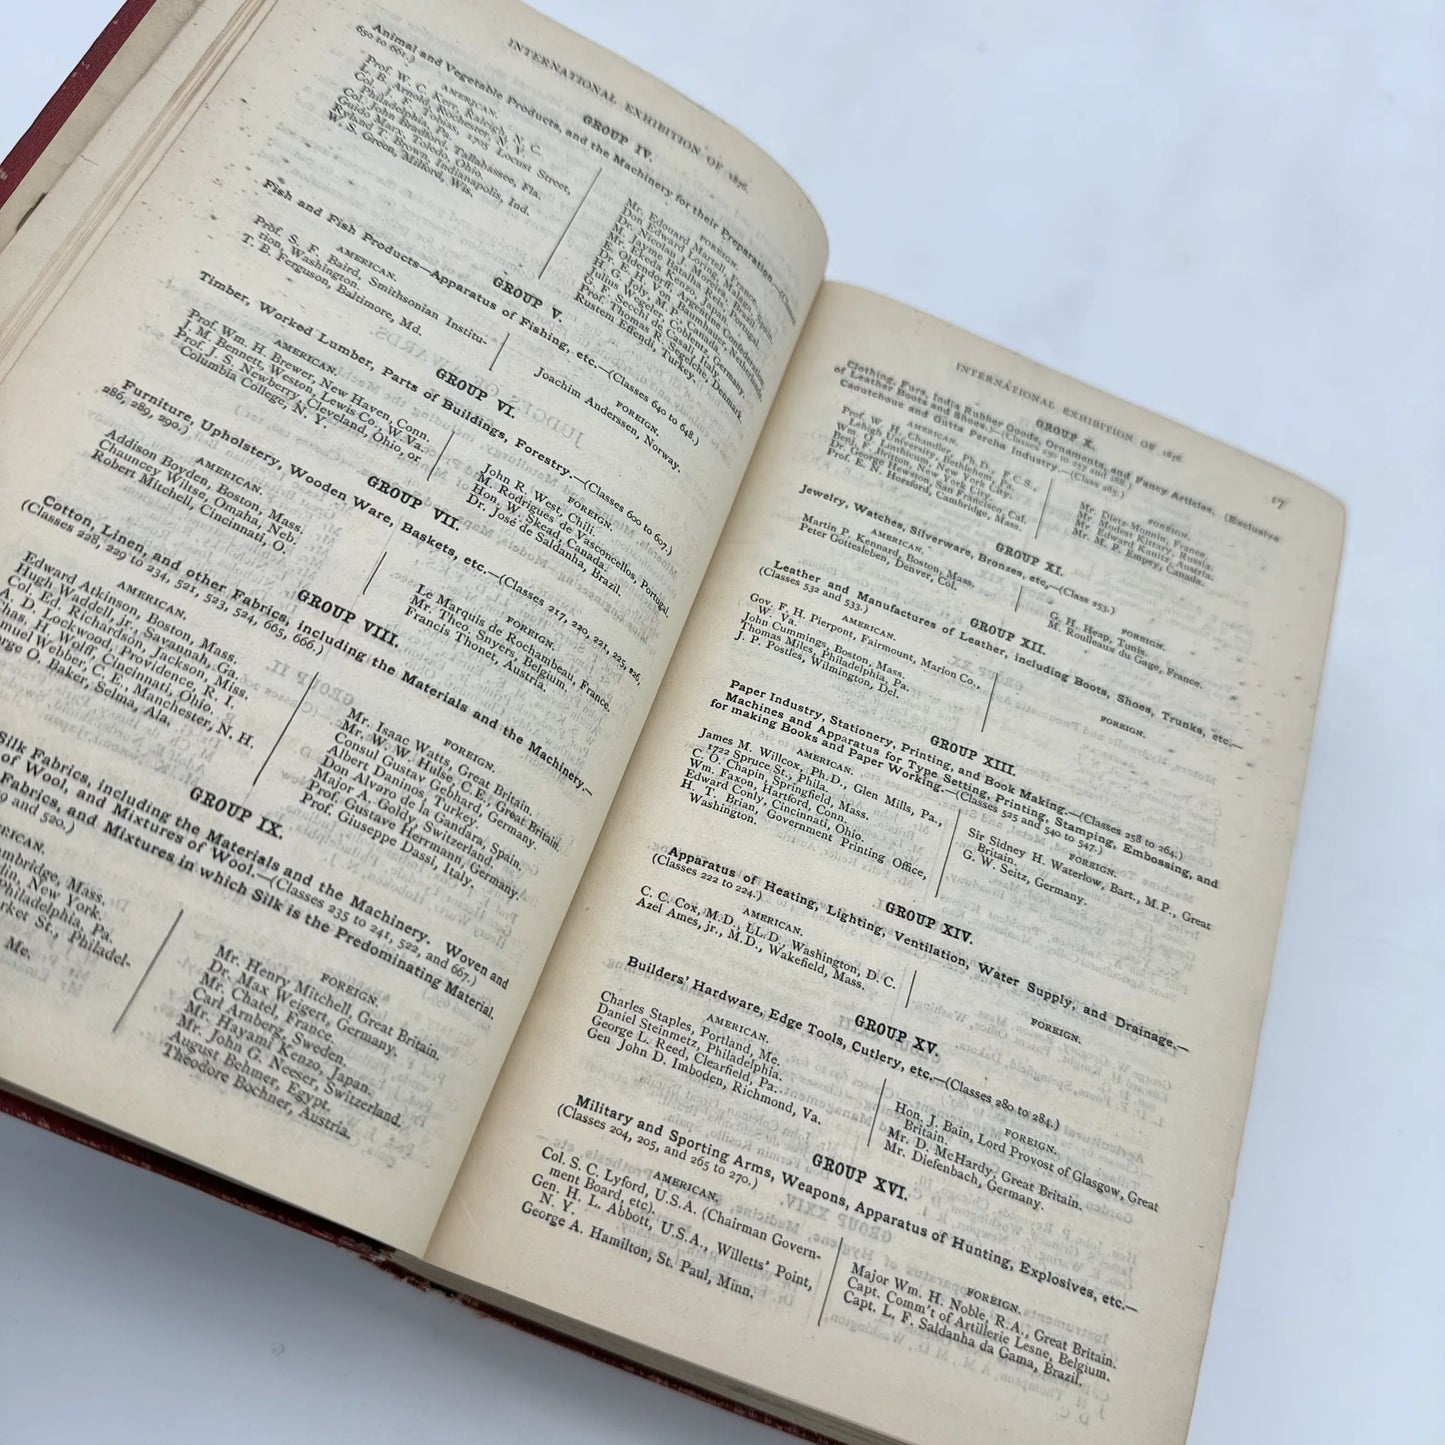 INTERNATIONAL EXHIBITION OF 1876.
GROUP IV.
Animal and Vegetable Products, and the Machinery for their Preparation.—(Classes
650 to 661.)
AMERICAN.
Prof. W. C. Kerr, Raleigh, N. C.
L. B. Arnold, Rochester, N. Y.
Col. J. F. Tobias, 1705 Locust Street,
Philadelphia, Pa.
Col. John Bradford, Tallahassee, Fla.
Guido Marx, Toledo, Ohio.
Ryland T. Brown, Indianapolis, Ind.
W. S. Green, Milford, Wis.
FOREIGN.
Mr. Edouard Martell, France.
Don Edward Loring, Malaga, Spain.
Dr. Nicolau J. Moreira, Brazil.
Mr. Jayme Batalha Reis, Portugal.
Mr. Ekeda Kenzo, Japan.
E. Oldendorff, Argentine Confederation.
Dr. E. H. Von Baumhauer, Netherlands.
H. G. Joly, M. P., Canada.
Julius Wogeler, Coblentz, Germany.
G. F. Secchi de Casali, Italy.
Prof. Thomas R. Segelche, Denmark.
Rustem Effendi, Turkey.
GROUP V.
Fish and Fish Products—Apparatus of Fishing, etc.—(Classes 640 to 648.)
AMERICAN.
Prof. S. F. Baird, Smithsonian Institu-
tion, Washington.
T. B. Ferguson, Baltimore, Md.
FOREIGN.
Joachim Anderssen, Norway.
GROUP VI.
Timber, Worked Lumber, Parts of Buildings, Forestry.—(Classes 600 to 607.)
AMERICAN.
Prof. Wm. H. Brewer, New Haven, Conn.
J. M. Bennett, Weston, Lewis Co., W. Va.
Prof. J. S. Newberry, Cleveland, Ohio, or
Columbia College, N. Y.
FOREIGN.
John R. West, Chili.
M. Rodrigues de Vasconcellos, Portugal.
Hon. W. Skead, Canada.
Dr. José de Saldanha, Brazil.
GROUP VII.
Furniture, Upholstery, Wooden Ware, Baskets, etc.—(Classes 217, 220, 221, 225, 226,
286, 289, 290.)
AMERICAN.
Addison Boyden, Boston, Mass.
Chauncey Wiltse, Omaha, Neb.
Robert Mitchell, Cincinnati, O.
FOREIGN.
Le Marquis de Rochambeau, France.
Mr. Theo. Snyers, Belgium.
Francis Thonet, Austria.
GROUP VIII.
Cotton, Linen, and other Fabrics, including the Materials and the Machinery.—
(Classes 228, 229 to 234, 521, 523, 524, 665, 666.)
AMERICAN.
Edward Atkinson, Boston, Mass.
Hugh Waddell, jr., Savannah, Ga.
Col. Ed. Richardson, Jackson, Miss.
A. D. Lockwood, Providence, R. I.
Chas. H. Wolff, Cincinnati, Ohio.
muel Webber, C. E., Manchester, N. H.
orge O. Baker, Selma, Ala.
FOREIGN.
Mr. Isaac Watts, Great Britain.
Mr. W. W. Hulse, C. E., Great Britain.
Consul Gustav Gebhard, Germany.
Albert Daninos, Turkey.
Don Alvaro de la Gandara, Spain.
Major A. Goldy, Switzerland.
Prof. Gustave Herrmann, Germany.
Prof. Giuseppe Dassi, Italy.
GROUP IX.
Silk Fabrics, including the Materials and the Machinery. Woven and
of Wool, and Mixtures of Wool.—(Classes 235 to 241, 522, and 667.)
Fabrics, and Mixtures in which Silk is the Predominating Material.
9 and 520.)
RICAN.
mbridge, Mass.
lin, New York.
Philadelphia, Pa.
rket St., Philadel-
Me.
FOREIGN.
Mr. Henry Mitchell, Great Britain.
Dr. Max Weigert, Germany.
Mr. Chatel, France.
Carl Arnberg, Sweden.
Mr. Hayami Kenzo, Japan.
Mr. John G. Neeser, Switzerland.
August Behmer, Egypt.
Theodore Bochner, Austria.
INTERNATIONAL EXHIBITION OF 1876.
17
GROUP X.
Clothing, Furs, India Rubber Goods, Ornaments, and Fancy Articles. (Exclusive
of Leather Boots and Shoes.)—(Classes 250 to 257 and 288.)
Caoutchouc and Gutta Percha Industry.—(Class 285.)
AMERICAN.
Prof. W. H. Chandler, Ph. D., F. C. S.,
Lehigh University, Bethlehem, Pa.
Wm. O. Linthicum, New York City.
Benj. F. Britton, New York City.
Dr. George Hewston, San Francisco, Cal.
Prof. E. N. Horsford, Cambridge, Mass.
FOREIGN.
Mr. Dietz-Monnin, France.
Mr. Modest Kittary, Russia.
Mr. Edward Kanitz, Austria.
Mr. M. P. Empey, Canada.
GROUP XI.
Jewelry, Watches, Silverware, Bronzes, etc,—(Class 253.)
AMERICAN.
Martin P. Kennard, Boston, Mass.
Peter Gottesleben, Denver, Col.
FOREIGN.
G. H. Heap, Tunis.
M. Roulleaux du Gage, France.
GROUP XII.
Leather and Manufactures of Leather, including Boots, Shoes, Trunks, etc.—
(Classes 532 and 533.)
AMERICAN.
Gov. F. H. Pierpont, Fairmount, Marion Co.,
W. Va.
John Cummings, Boston, Mass.
Thomas Miles, Philadelphia, Pa.
J. P. Postles, Wilmington, Del.
FOREIGN.
GROUP XIII.
Paper Industry, Stationery, Printing, and Book Making.—(Classes 258 to 264.)
Machines and Apparatus for Type Setting, Printing, Stamping, Embossing, and
for making Books and Paper Working.—(Classes 525 and 540 to 547.)
AMERICAN.
James M. Willcox, Ph.D., Glen Mills, Pa.,
1722 Spruce St., Phila.
C. O. Chapin, Springfield, Mass.
Wm. Faxon, Hartford, Conn.
Edward Conly, Cincinnati, Ohio.
H. T. Brian, Government Printing Office,
Washington.
FOREIGN.
Sir Sidney H. Waterlow, Bart., M.P., Great
Britain.
G. W. Seitz, Germany.
GROUP XIV.
Apparatus of Heating, Lighting, Ventilation, Water Supply, and Drainage.—
(Classes 222 to 224.)
AMERICAN.
C. C. Cox, M.D., LL.D., Washington, D. C.
Azel Ames, jr., M.D., Wakefield, Mass.
FOREIGN.
GROUP XV.
Builders' Hardware, Edge Tools, Cutlery, etc.—(Classes 280 to 284.)
AMERICAN.
Charles Staples, Portland, Me.
Daniel Steinmetz, Philadelphia.
George L. Reed, Clearfield, Pa.
Gen John D. Imboden, Richmond, Va.
FOREIGN.
Hon. J. Bain, Lord Provost of Glasgow, Great
Britain.
Mr. D. McHardy, Great Britain.
Mr. Diefenbach, Germany.
GROUP XVI.
Military and Sporting Arms, Weapons, Apparatus of Hunting, Explosives, etc.—
(Classes 204, 205, and 265 to 270.)
AMERICAN.
Col. S. C. Lyford, U.S.A. (Chairman Govern-
ment Board, etc).
Gen. H. L. Abbott, U.S.A., Willetts' Point,
N. Y.
George A. Hamilton, St. Paul, Minn.
FOREIGN.
Major Wm. H. Noble, R.A., Great Britain.
Capt. Comm't of Artillerie Lesne, Belgium.
Capt. L. F. Saldanha da Gama, Brazil.